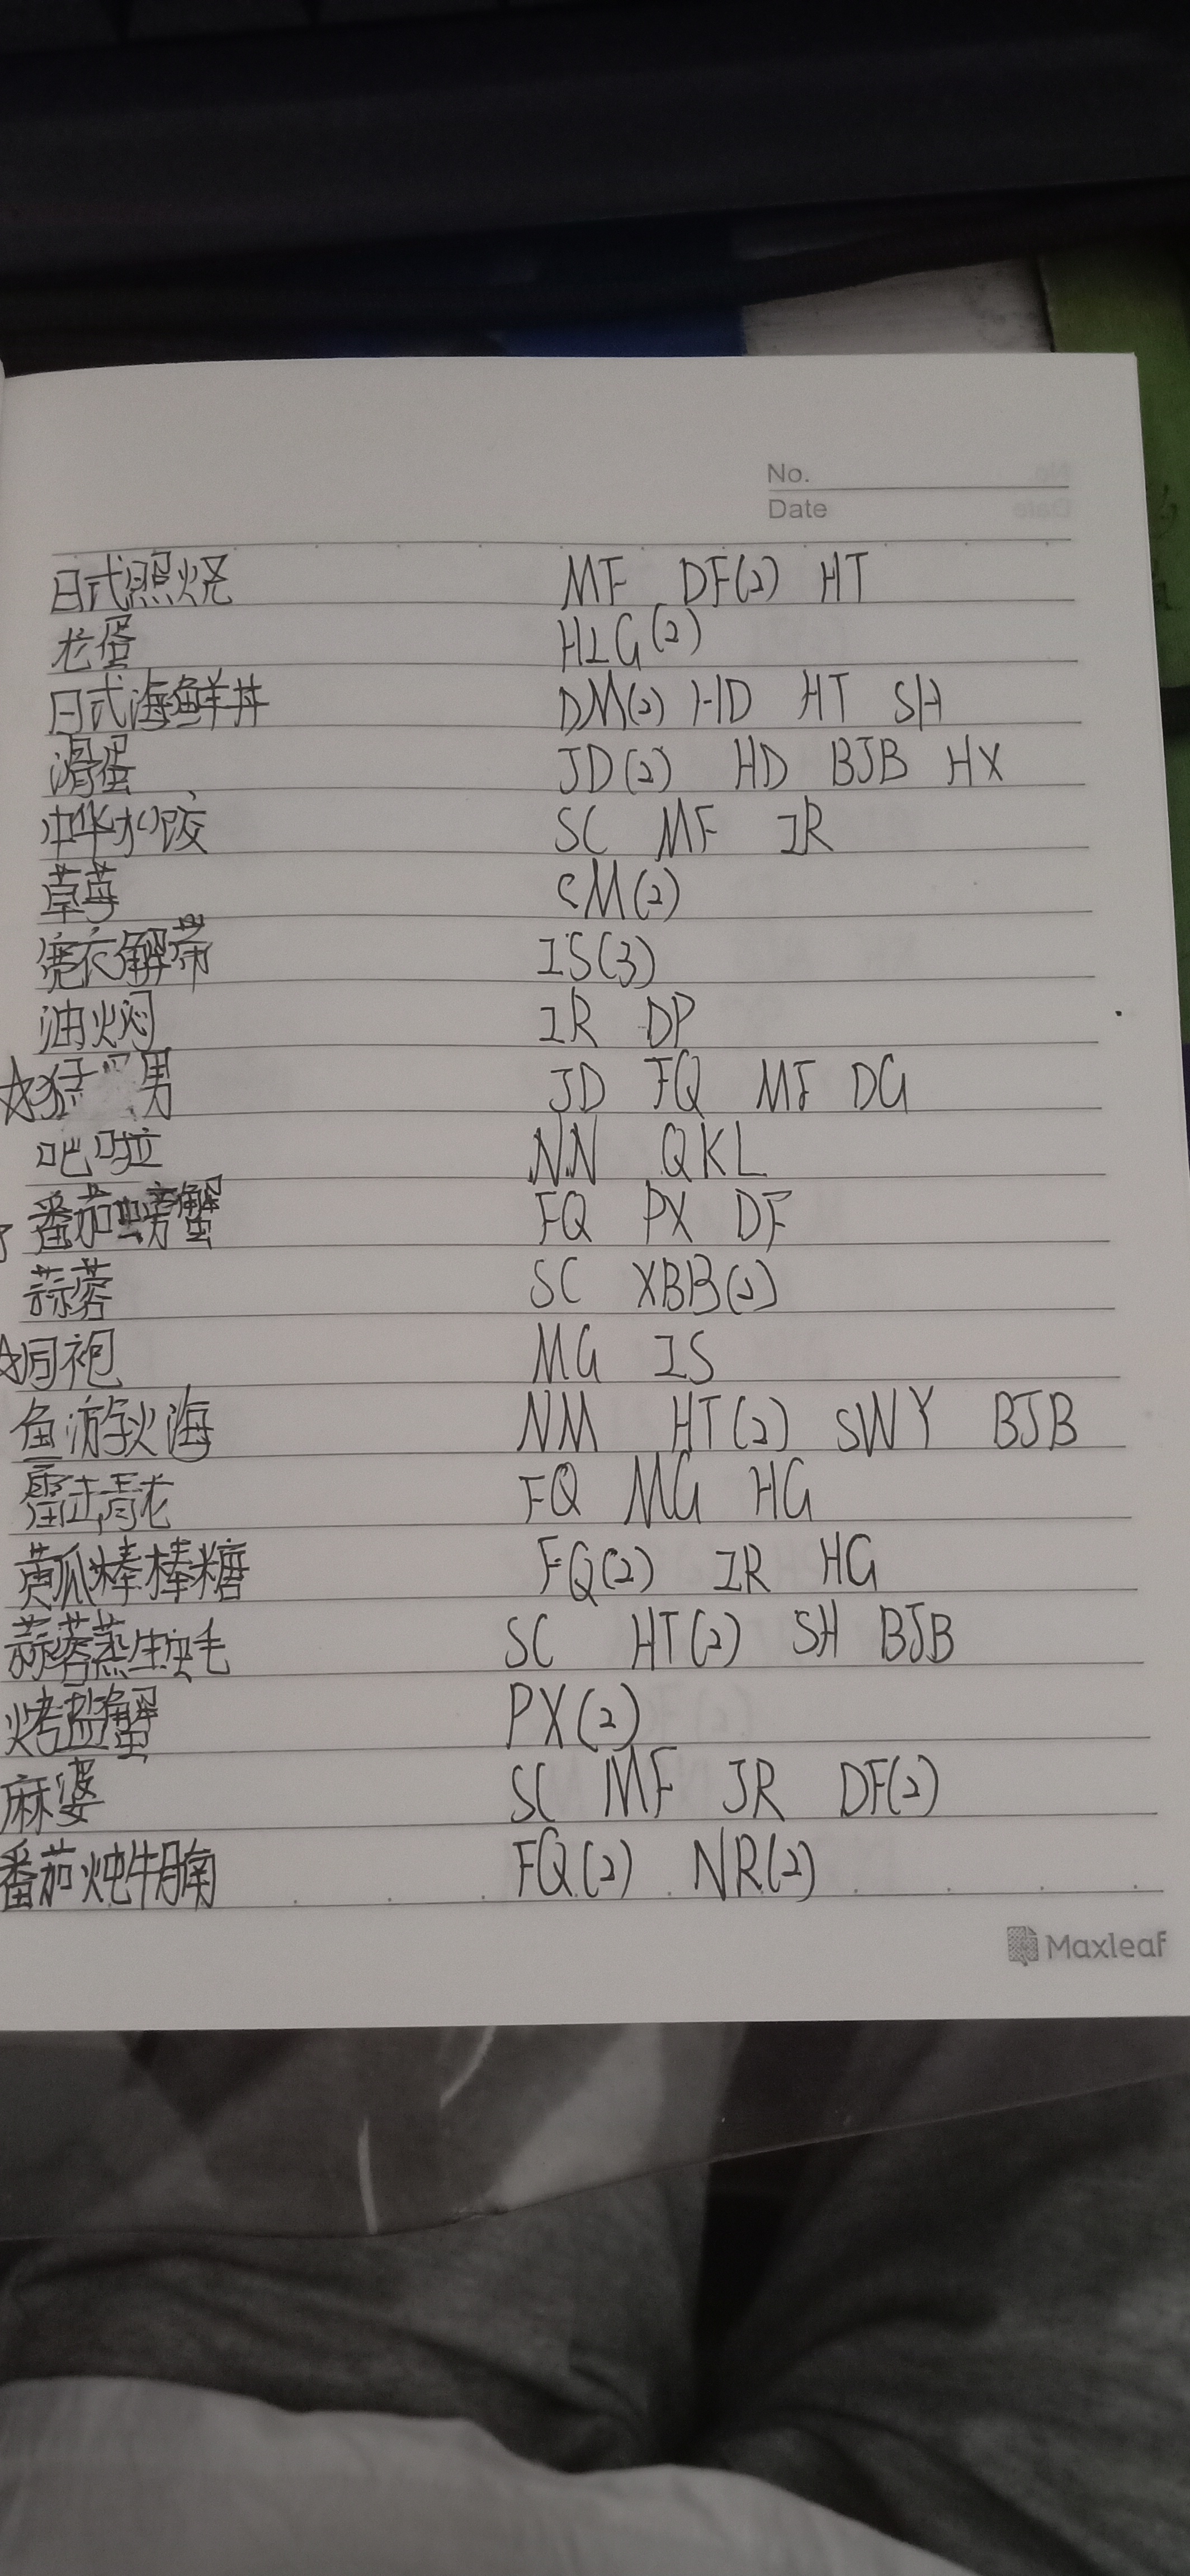 No.
Date
日式照烧 MF DF(2) HT
龙蛋 HLG(2)
日式海鲜丼 DM(2) HD HT SH
滑蛋 JD(2) HD BJB HX
中华水饺 SC MF JR
草莓 CM(2)
宽衣解带 JS(3)
油焖 JR DP
☆猛男 JD FQ MF DG
吧啦 NN QKL
番茄螃蟹 FQ PX DF
蒜蓉 SC XBB(2)
☆同袍 MG JS
鱼游火海 NM HT(2) SWY BJB
雷击青龙 FQ MG HG
黄瓜棒棒糖 FQ(2) JR HG
蒜蓉蒸生虫毛 SC HT(2) SH BJB
烤盐蟹 PX(2)
麻婆 SC MF JR DF(2)
番茄炖牛腩 FQ(2) NR(2)
Maxleaf